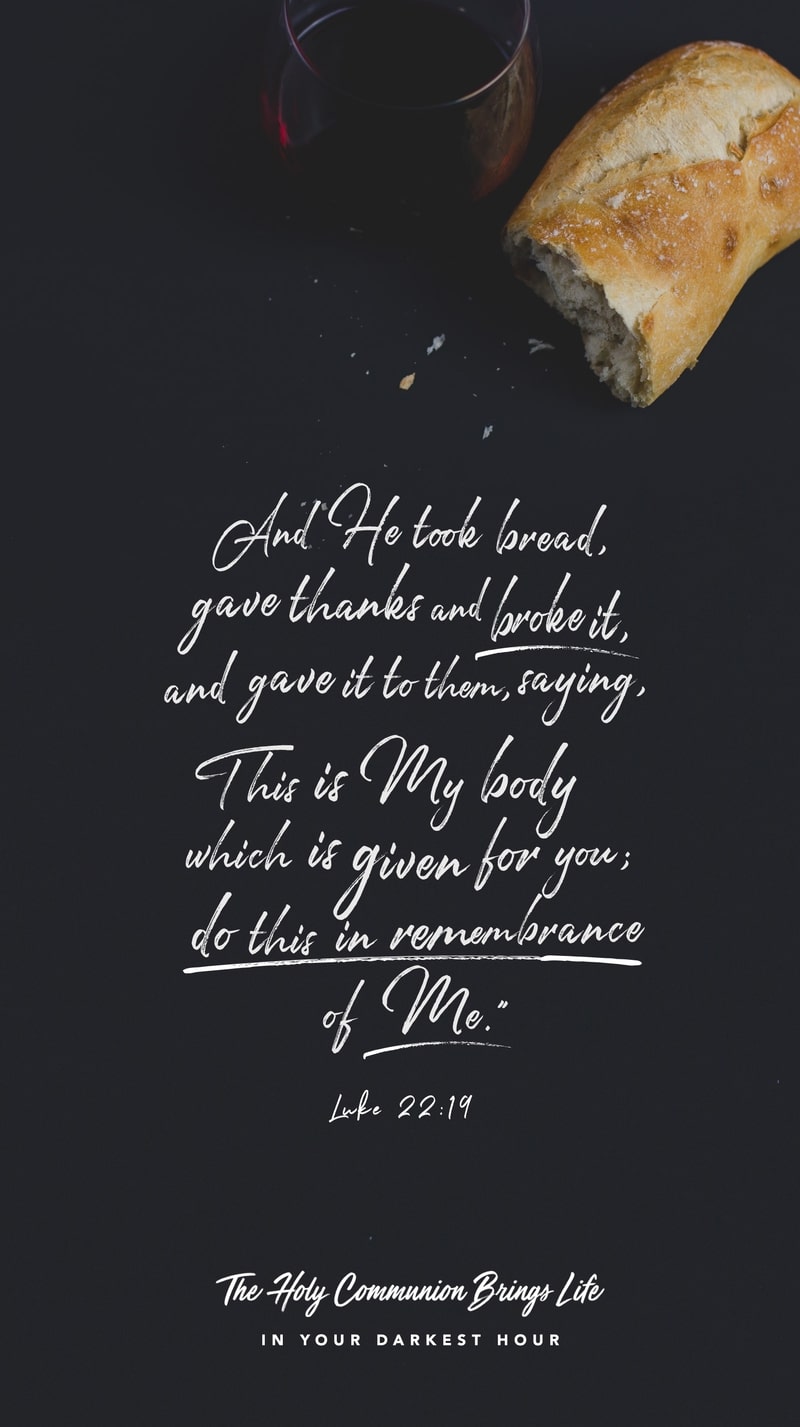 And He took bread,
gave thanks and broke it,
and gave it to them, saying,
This is My body
which is given for you;
do this in remembrance
of Me."
Luke 22:19
The Holy Communion Brings Life
IN YOUR DARKEST HOUR